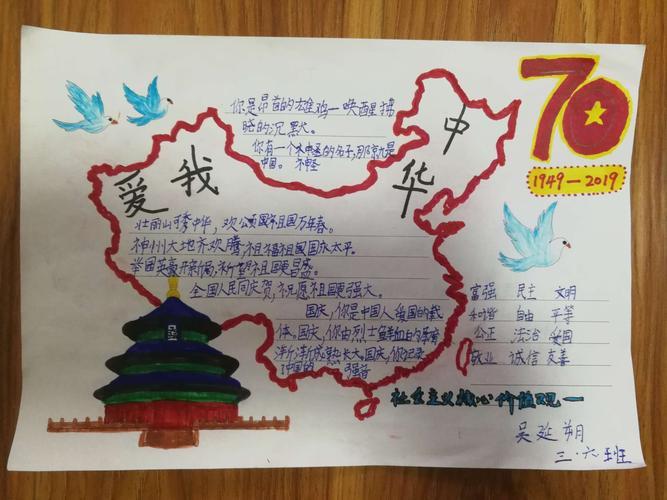 你是昂首的雄鸡一唤醒拂
晓的沉默。
你有一个不申圣的名子,那就是
中国。 不轻
70
1949-2019
爱我中华
壮丽山河秀中华,欢公颂国祖国万年春。
神州大地齐欢腾,祖福祖国国庆太平。
举国英豪开新局,祈望祖国更昌盛。
全国人民同庆贺,祝愿祖国更强大。
国庆,你是中国人爱国的载
体。国庆,你由烈士鲜血白的孕育
渐渐成熟长大。国庆,你记录
了中国的 强音
富强 民主 文明
和谐 自由 平等
公正 法治 爱国
敬业 诚信 友善
社会主义核心价值观一
吴延朔
三·六班